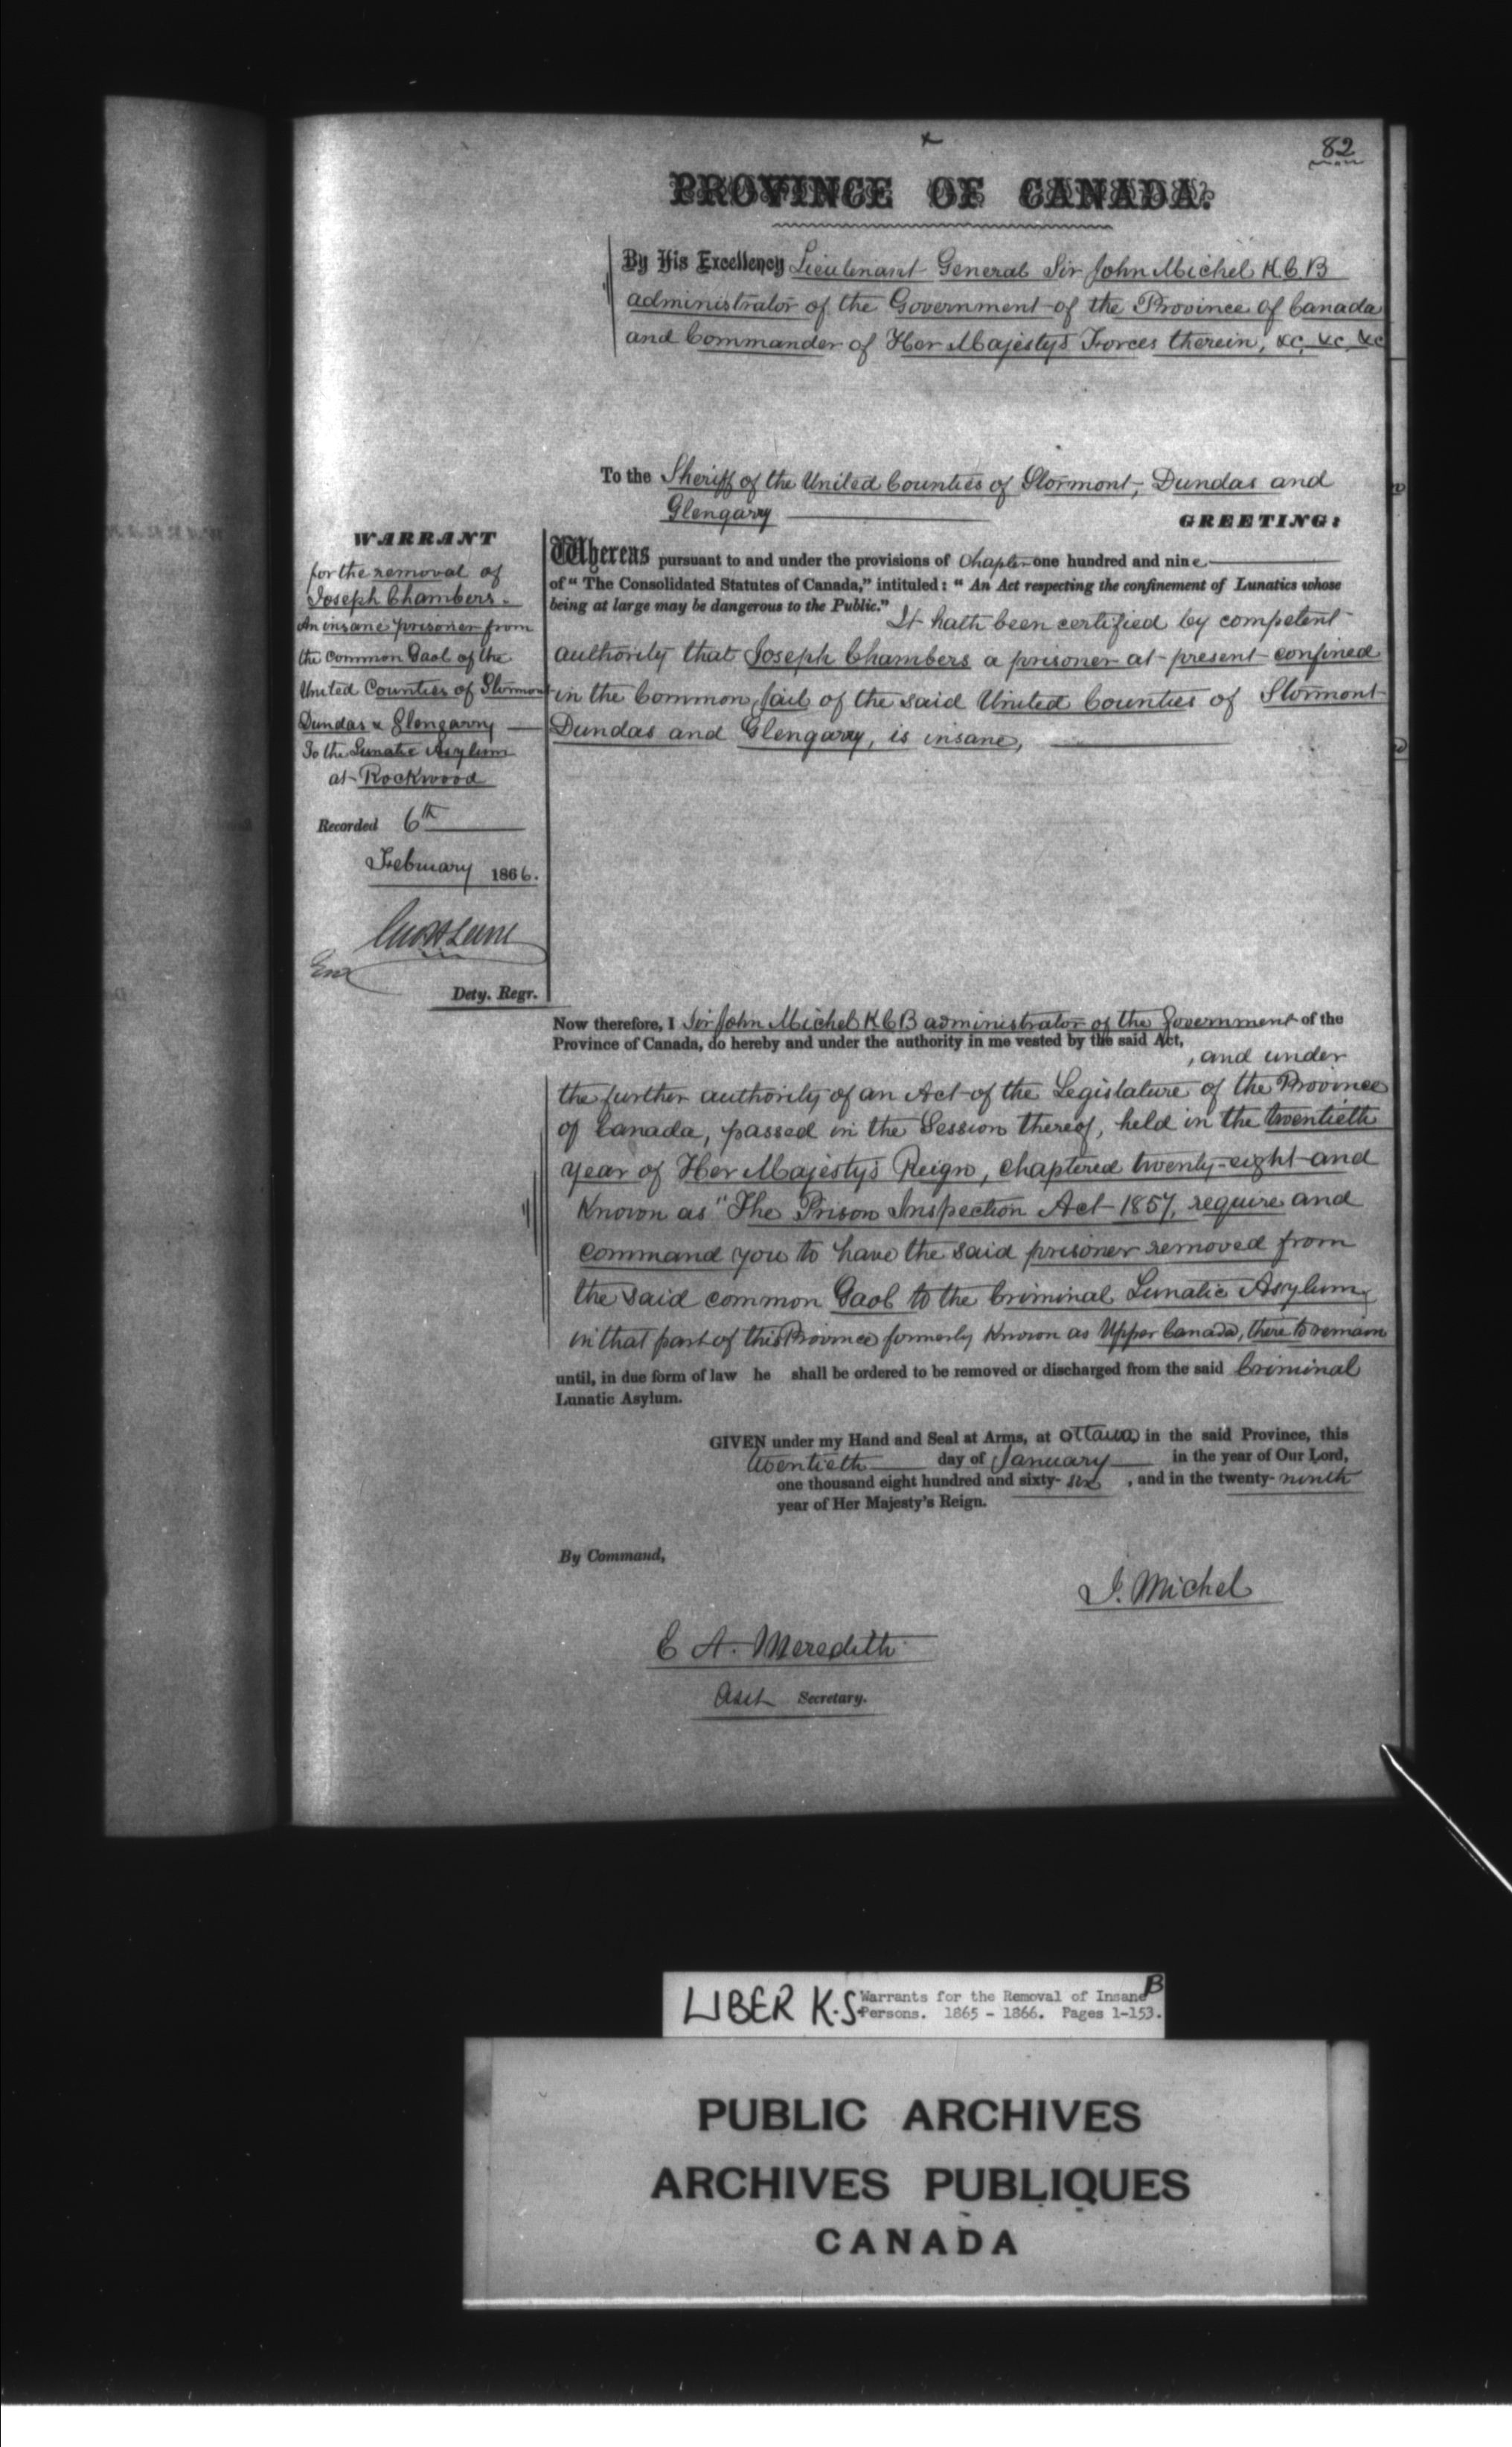 82
PROVINCE OF CANADA.
By His Excellency Lieutenant General Sir John Michel K.C.B
administrator of the Government of the Province of Canada
and Commander of Her Majesty's Forces therein, &c, &c, &c
To the Sheriff of the United Counties of Stormont, Dundas and
Glengary
GREETING:
WARRANT
for the removal of
Joseph Chambers.
An insane prisoner from
the common Gaol of the
United Counties of Stormont
Dundas & Glengarry
To the Lunatic Asylum
at Rockwood
Recorded 6th
February 1866.
Dety. Regr.
Whereas pursuant to and under the provisions of Chapter one hundred and nine
of "The Consolidated Statutes of Canada," intituled: "An Act respecting the confinement of Lunatics whose
being at large may be dangerous to the Public."
It hath been certified by competent
authority that Joseph Chambers a prisoner at present confined
in the Common Jail of the said United Counties of Stormont
Dundas and Glengary, is insane,
Now therefore, I Sir John Michel K C B administrator of the Government of the
Province of Canada, do hereby and under the authority in me vested by the said Act,
, and under
the further authority of an Act of the Legislature of the Province
of Canada, passed in the Session thereof, held in the twentieth
year of Her Majesty's Reign, chaptered twenty-eight and
Known as "The Prison Inspection Act 1857, require and
command you to have the said prisoner removed from
the said common Gaol to the Criminal Lunatic Asylum
in that part of this Province formerly Known as Upper Canada, there to remain
until, in due form of law he shall be ordered to be removed or discharged from the said Criminal
Lunatic Asylum.
GIVEN under my Hand and Seal at Arms, at Ottawa, in the said Province, this
twentieth day of January in the year of Our Lord,
one thousand eight hundred and sixty-six, and in the twenty-ninth
year of Her Majesty's Reign.
By Command,
J. Michel
E A. Meredith
Asst Secretary.
LIBER K.S. Warrants for the Removal of Insane B
Persons. 1865 - 1866. Pages 1-153.
PUBLIC ARCHIVES
ARCHIVES PUBLIQUES
CANADA